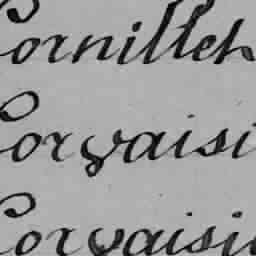 Cornillet
Corvaisi
Corvaisi